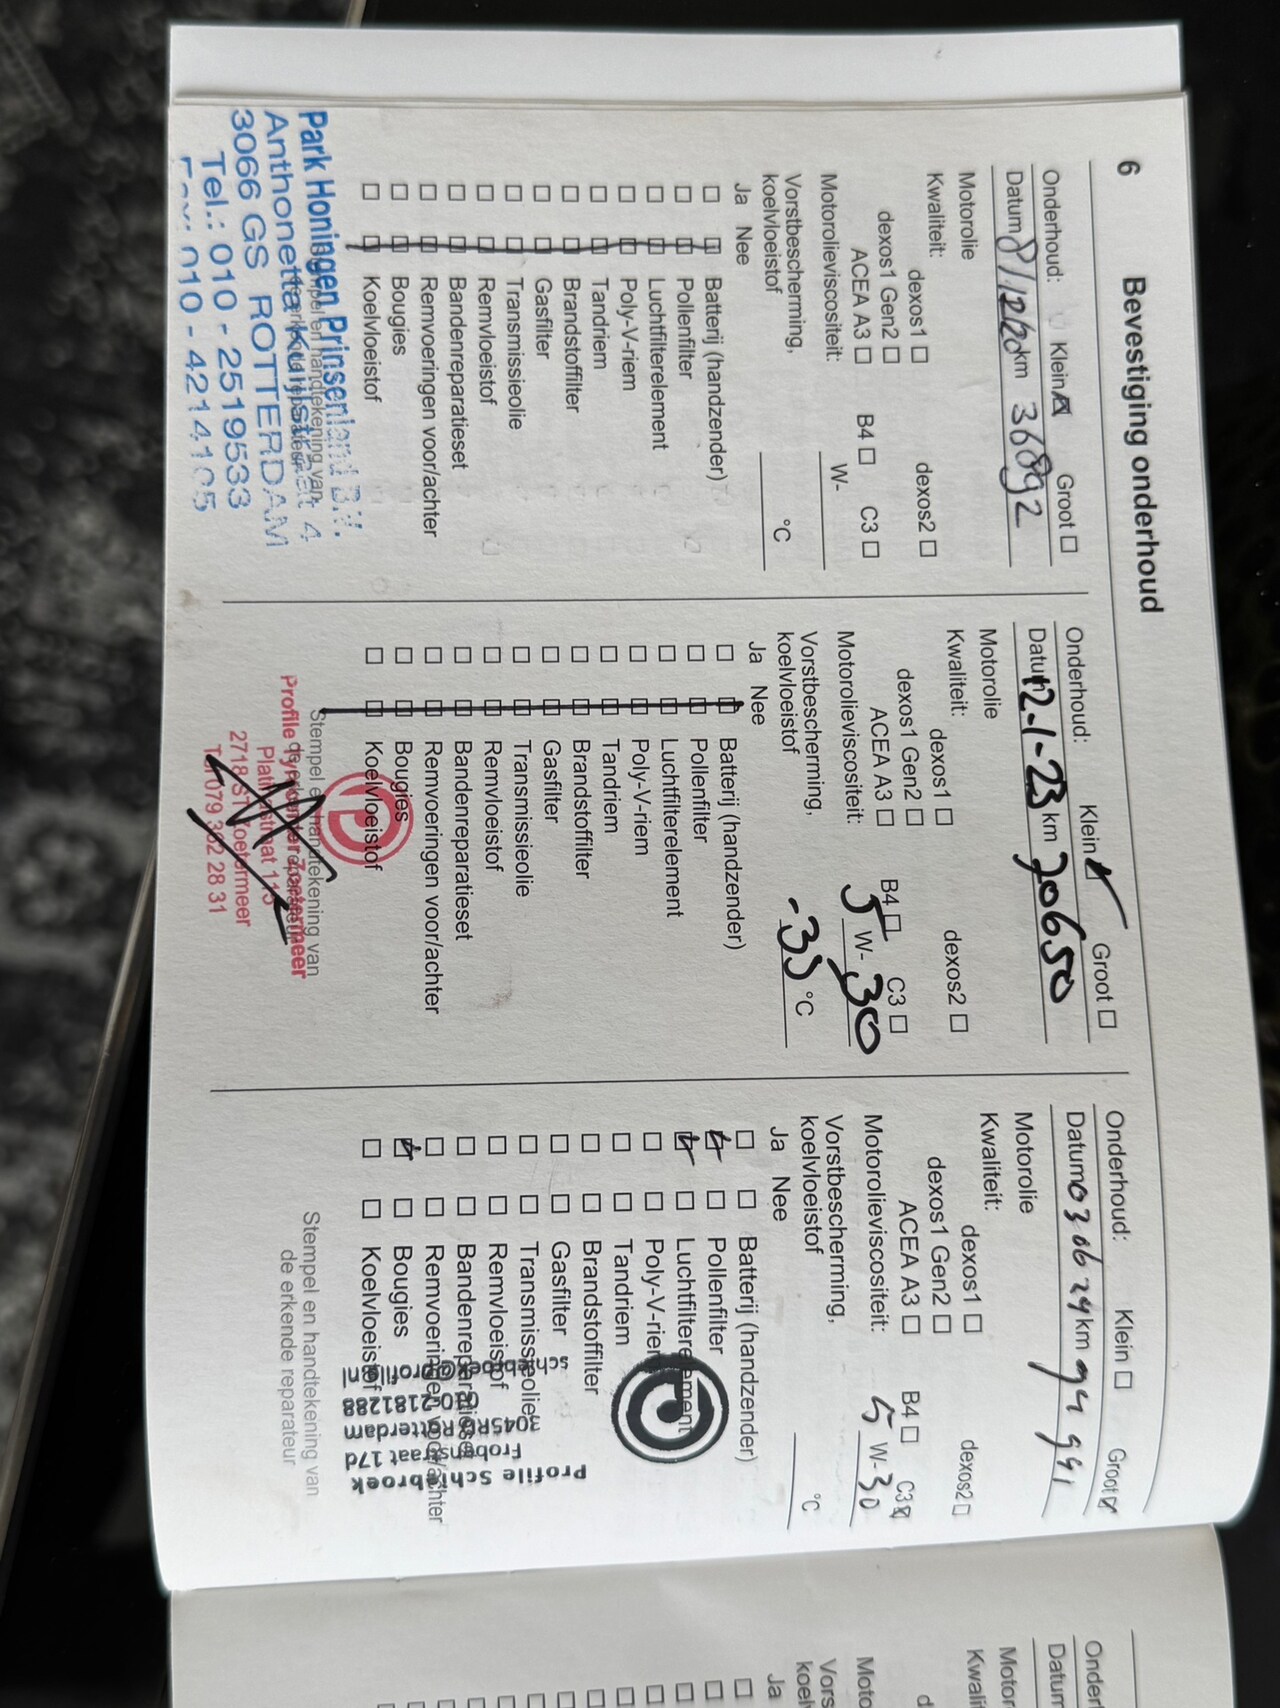 6 Bevestiging onderhoud
Onderhoud: Klein Groot
Datum 8/12/20 km 36892
Motorolie
Kwaliteit: dexos1 dexos2
dexos1 Gen2
ACEA A3 B4 C3
Motorolieviscositeit: W-
Vorstbescherming,
koelvloeistof °C
Ja Nee
Batterij (handzender)
Pollenfilter
Luchtfilterelement
Poly-V-riem
Tandriem
Brandstoffilter
Gasfilter
Transmissieolie
Remvloeistof
Bandenreparatieset
Remvoeringen voor/achter
Bougies
Koelvloeistof
Stempel en handtekening van
Park Honingen Prinsenland B.V.
3066 GS ROTTERDAM
Tel.: 010 - 2519533
Fax: 010 - 4214105
Onderhoud: Klein Groot
Datum 12-1-23 km 70650
Motorolie
Kwaliteit: dexos1 dexos2
dexos1 Gen2
ACEA A3 B4 C3
Motorolieviscositeit: 5 W-30
Vorstbescherming,
koelvloeistof -35 °C
Ja Nee
Batterij (handzender)
Pollenfilter
Luchtfilterelement
Poly-V-riem
Tandriem
Brandstoffilter
Gasfilter
Transmissieolie
Remvloeistof
Bandenreparatieset
Remvoeringen voor/achter
Bougies
Koelvloeistof
Stempel en handtekening van
Profile Tyrecenter Zoetermeer
2718 ST Zoetermeer
Tel 079 362 28 31
Onderhoud: Klein Groot
Datum 03 06 24 km 94991
Motorolie
Kwaliteit: dexos1 dexos2
dexos1 Gen2
ACEA A3 B4 C3
Motorolieviscositeit: 5 W-30
Vorstbescherming,
koelvloeistof °C
Ja Nee
Batterij (handzender)
Pollenfilter
Luchtfilterelement
Poly-V-riem
Tandriem
Brandstoffilter
Gasfilter
Transmissieolie
Remvloeistof
Bandenreparatieset
Remvoeringen voor/achter
Bougies
Koelvloeistof
Profile Schiebroek
Frobenstraat 17d
3045RD Rotterdam
010-2181288
schiebroek@profile.nl
Stempel en handtekening van
de erkende reparateur
Onder
Datum
Motor
Kwali
d
Moto
Vors
koel
Ja